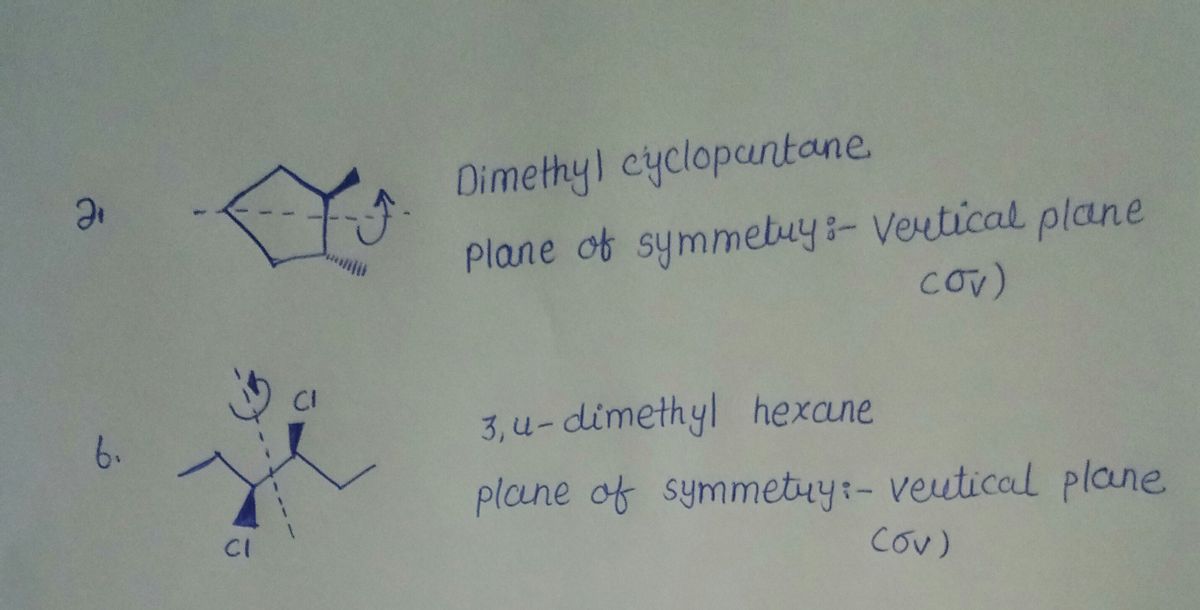 a. Dimethyl cyclopantane
plane of symmetry:- Vertical plane
(σv)
Cl
b. 3,4-dimethyl hexane
plane of symmetry:- vertical plane
Cl (σv)